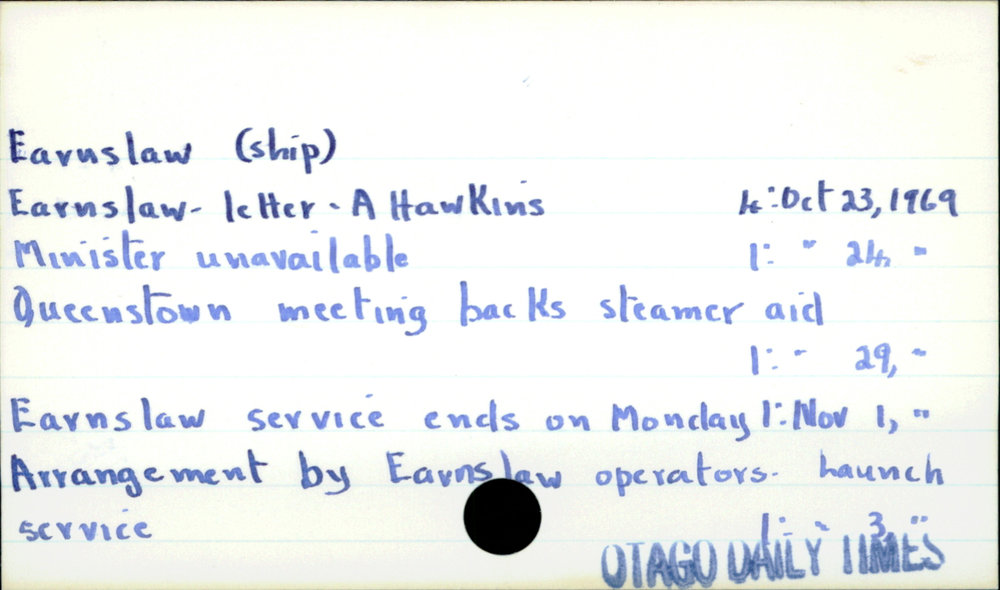 Earnslaw (ship)
Earnslaw - letter - A Hawkins 4: Oct 23, 1969
Minister unavailable 1: " 24, "
Queenstown meeting backs steamer aid
1: " 29, "
Earnslaw service ends on Monday 1: Nov 1, "
Arrangement by Earnslaw operators. Launch
service 1: " 3, "
OTAGO DAILY TIMES